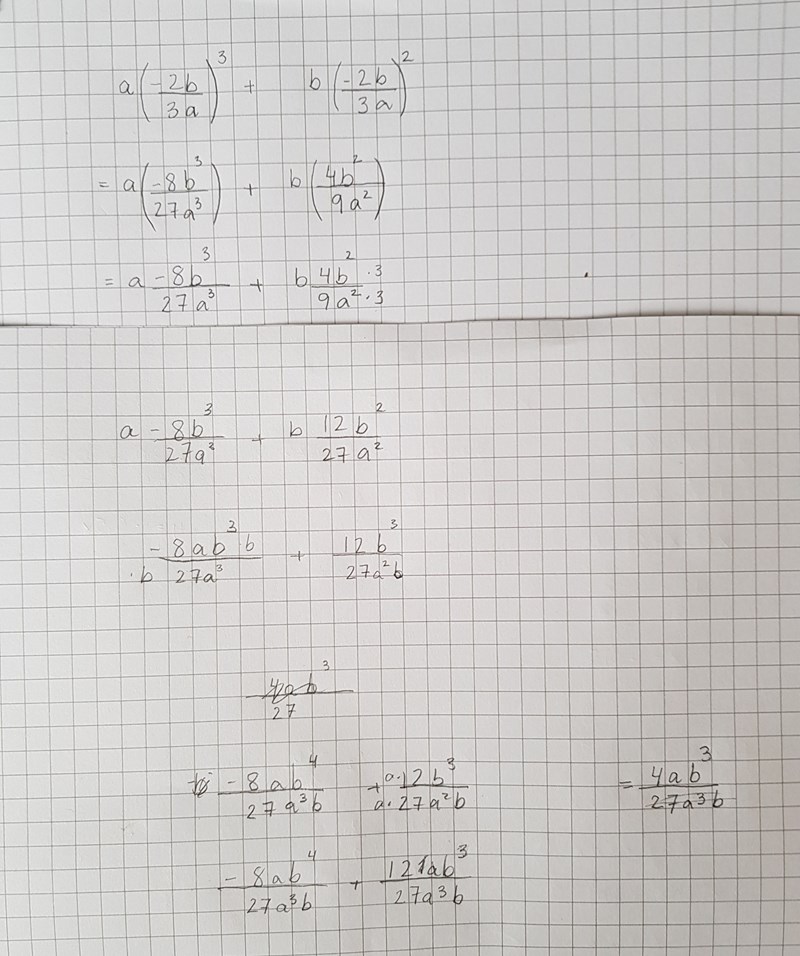 a(-2b/3a)^3 + b(-2b/3a)^2
= a(-8b^3/27a^3) + b(4b^2/9a^2)
= a -8b^3/27a^3 + b 4b^2·3/9a^2·3
a -8b^3/27a^3 + b 12b^2/27a^2
-8ab^3·b/·b 27a^3 + 12b^3/27a^2b
-8ab^4/27a^3b + a·12b^3/a·27a^2b = 4ab^3/27a^3b
-8ab^4/27a^3b + 12ab^3/27a^3b